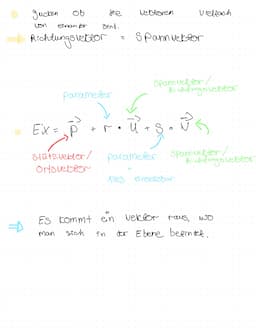 gucken ob die Vektoren vielfach
von einander sind.
Richtungsvektor = Spannvektor
Spannvektor/
Richtungsvektor
Parameter
Ex = p + r • u + s • v
Stützvektor/
Ortsvektor
Parameter
Spannvektor/
Richtungsvektor
Es kommt ein Vektor raus, wo
man sich in der Ebene befindet.